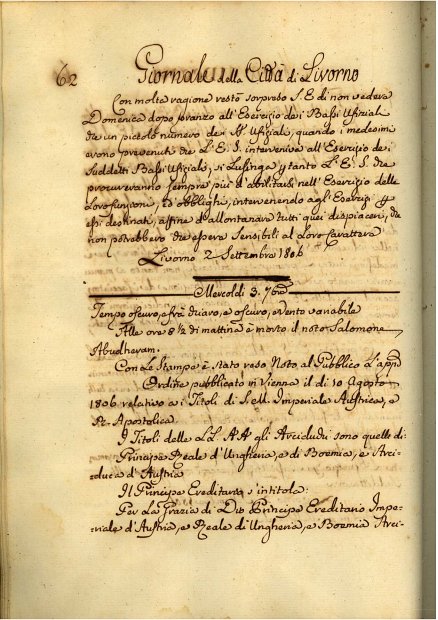 62
Giornale della Città di Livorno
Con molta ragione restò sorpreso S. E. di non vedere
Domenica dopo pranzo all'Esercizio dei Bassi Ufiziali
che un piccolo numero de SS.ri Ufiziali, quando i medesimi
erono prevenuti che L'E. S. interveniva all'Esercizio dei
suddetti Bassi Ufiziali, si Lusinga p tanto L'E. S. che
procureranno sempre più d'abilitarsi nell'Esercizio delle
Loro funzioni, ed obblighi, intervenendo agl'Esercizj p
essi destinati, affine d'allontanare tutti quei dispiaceri, che
non potrebbero che essere sensibili al Loro Carattere
Livorno 2 Settembre 1806
Mercoldi 3. 7bre
Tempo oscuro, e frà chiaro, e oscuro, e vento variabile
Alle ore 8½ di mattina è morto il noto Salomone
Abudharam.
Con Le Stampe è stato reso Noto al Pubblico L'app.
Ordine pubblicato in Vienna il di 10 Agosto
1806 relativo ai Titoli di S. M. Imperiale Austrica, e
R. Apostolica.
I Titoli delle LL. AA. gli Arciduchi sono quelle di
Principe Reale d'Ungheria, e di Boemia, e Arci-
duca d'Austria
Il Principe Ereditario s'intitola:
Per La Grazia di Dio Principe Ereditario Impe-
riale d'Austria, e Reale di Ungheria, e Boemia Arci-